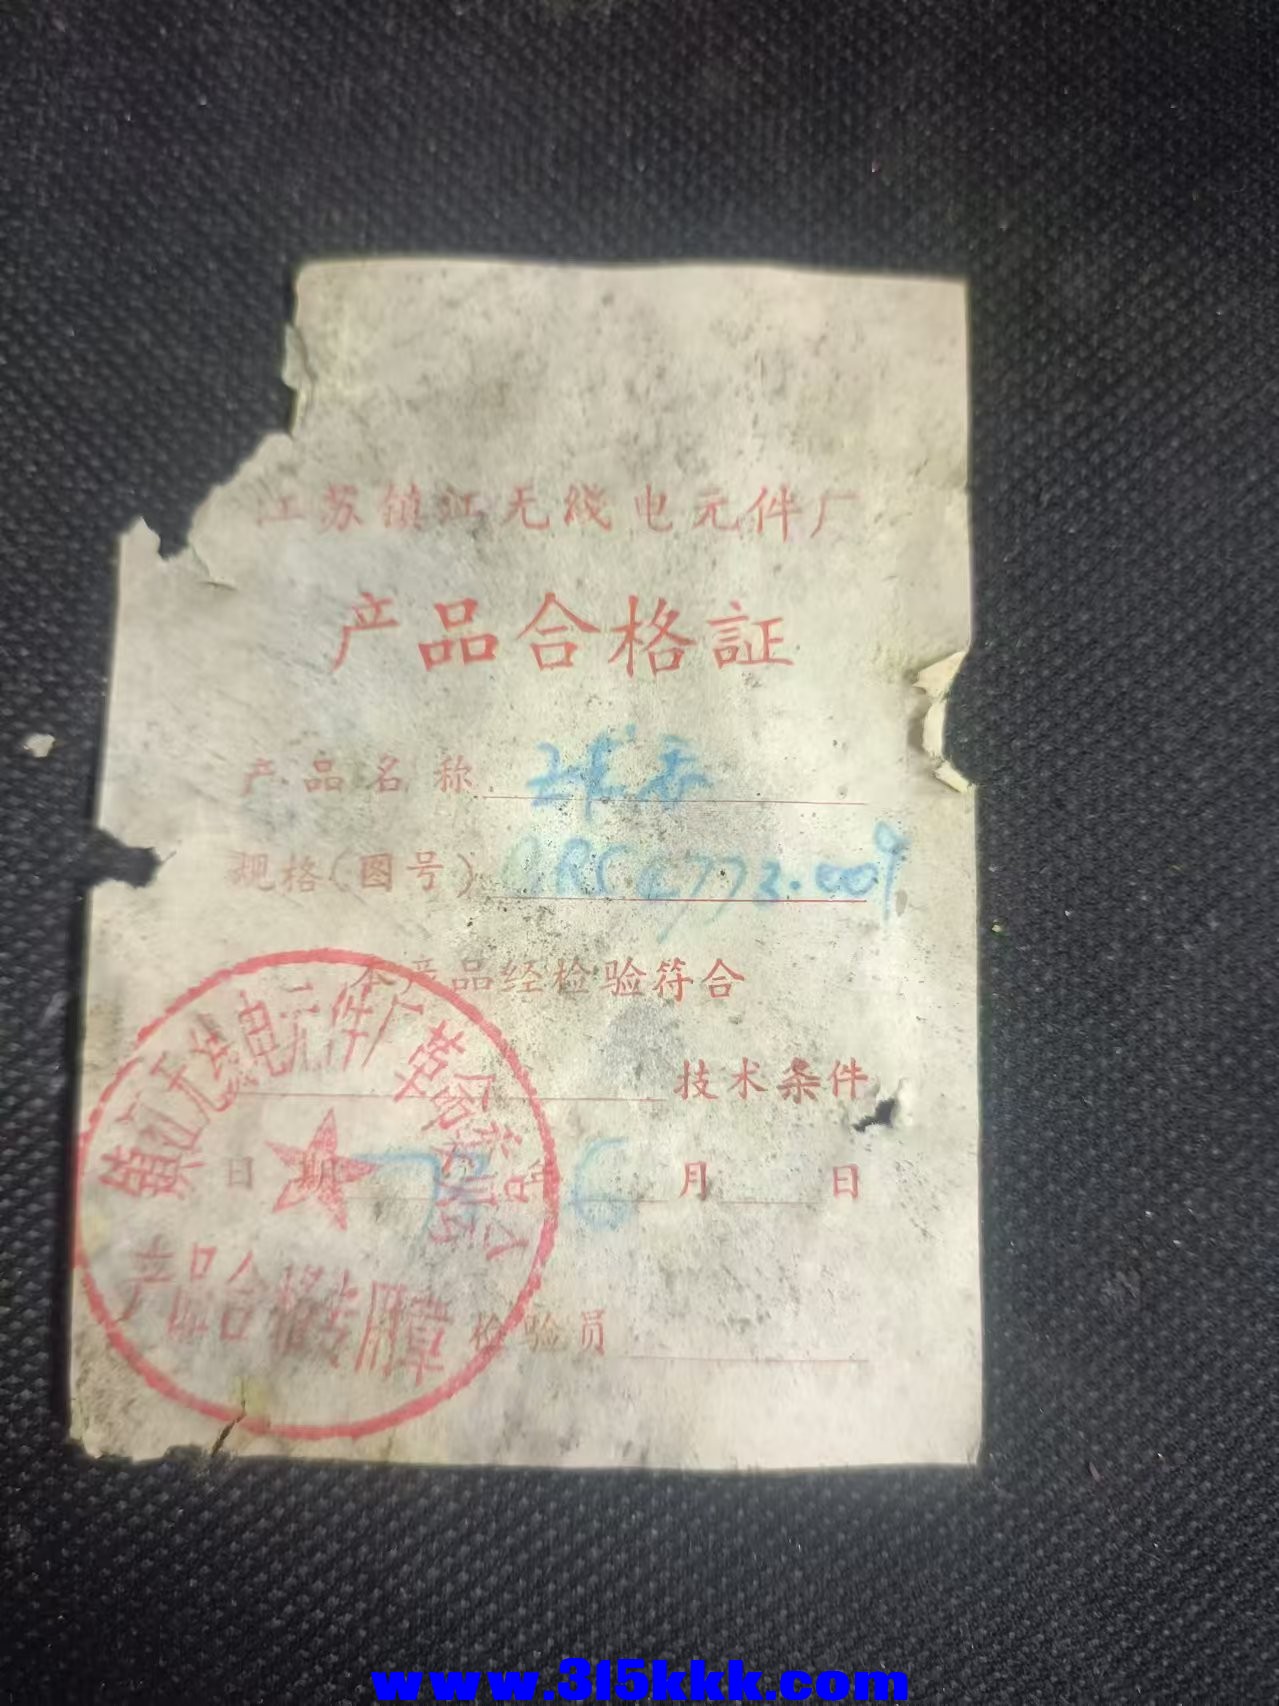 江苏镇江无线电元件厂
产品合格証
产品名称
规格(图号) 773.009
本产品经检验符合
技术条件
日期 年 6 月 日
检验员
镇江无线电元件厂革命
产品合格专用章
www.315kkk.com